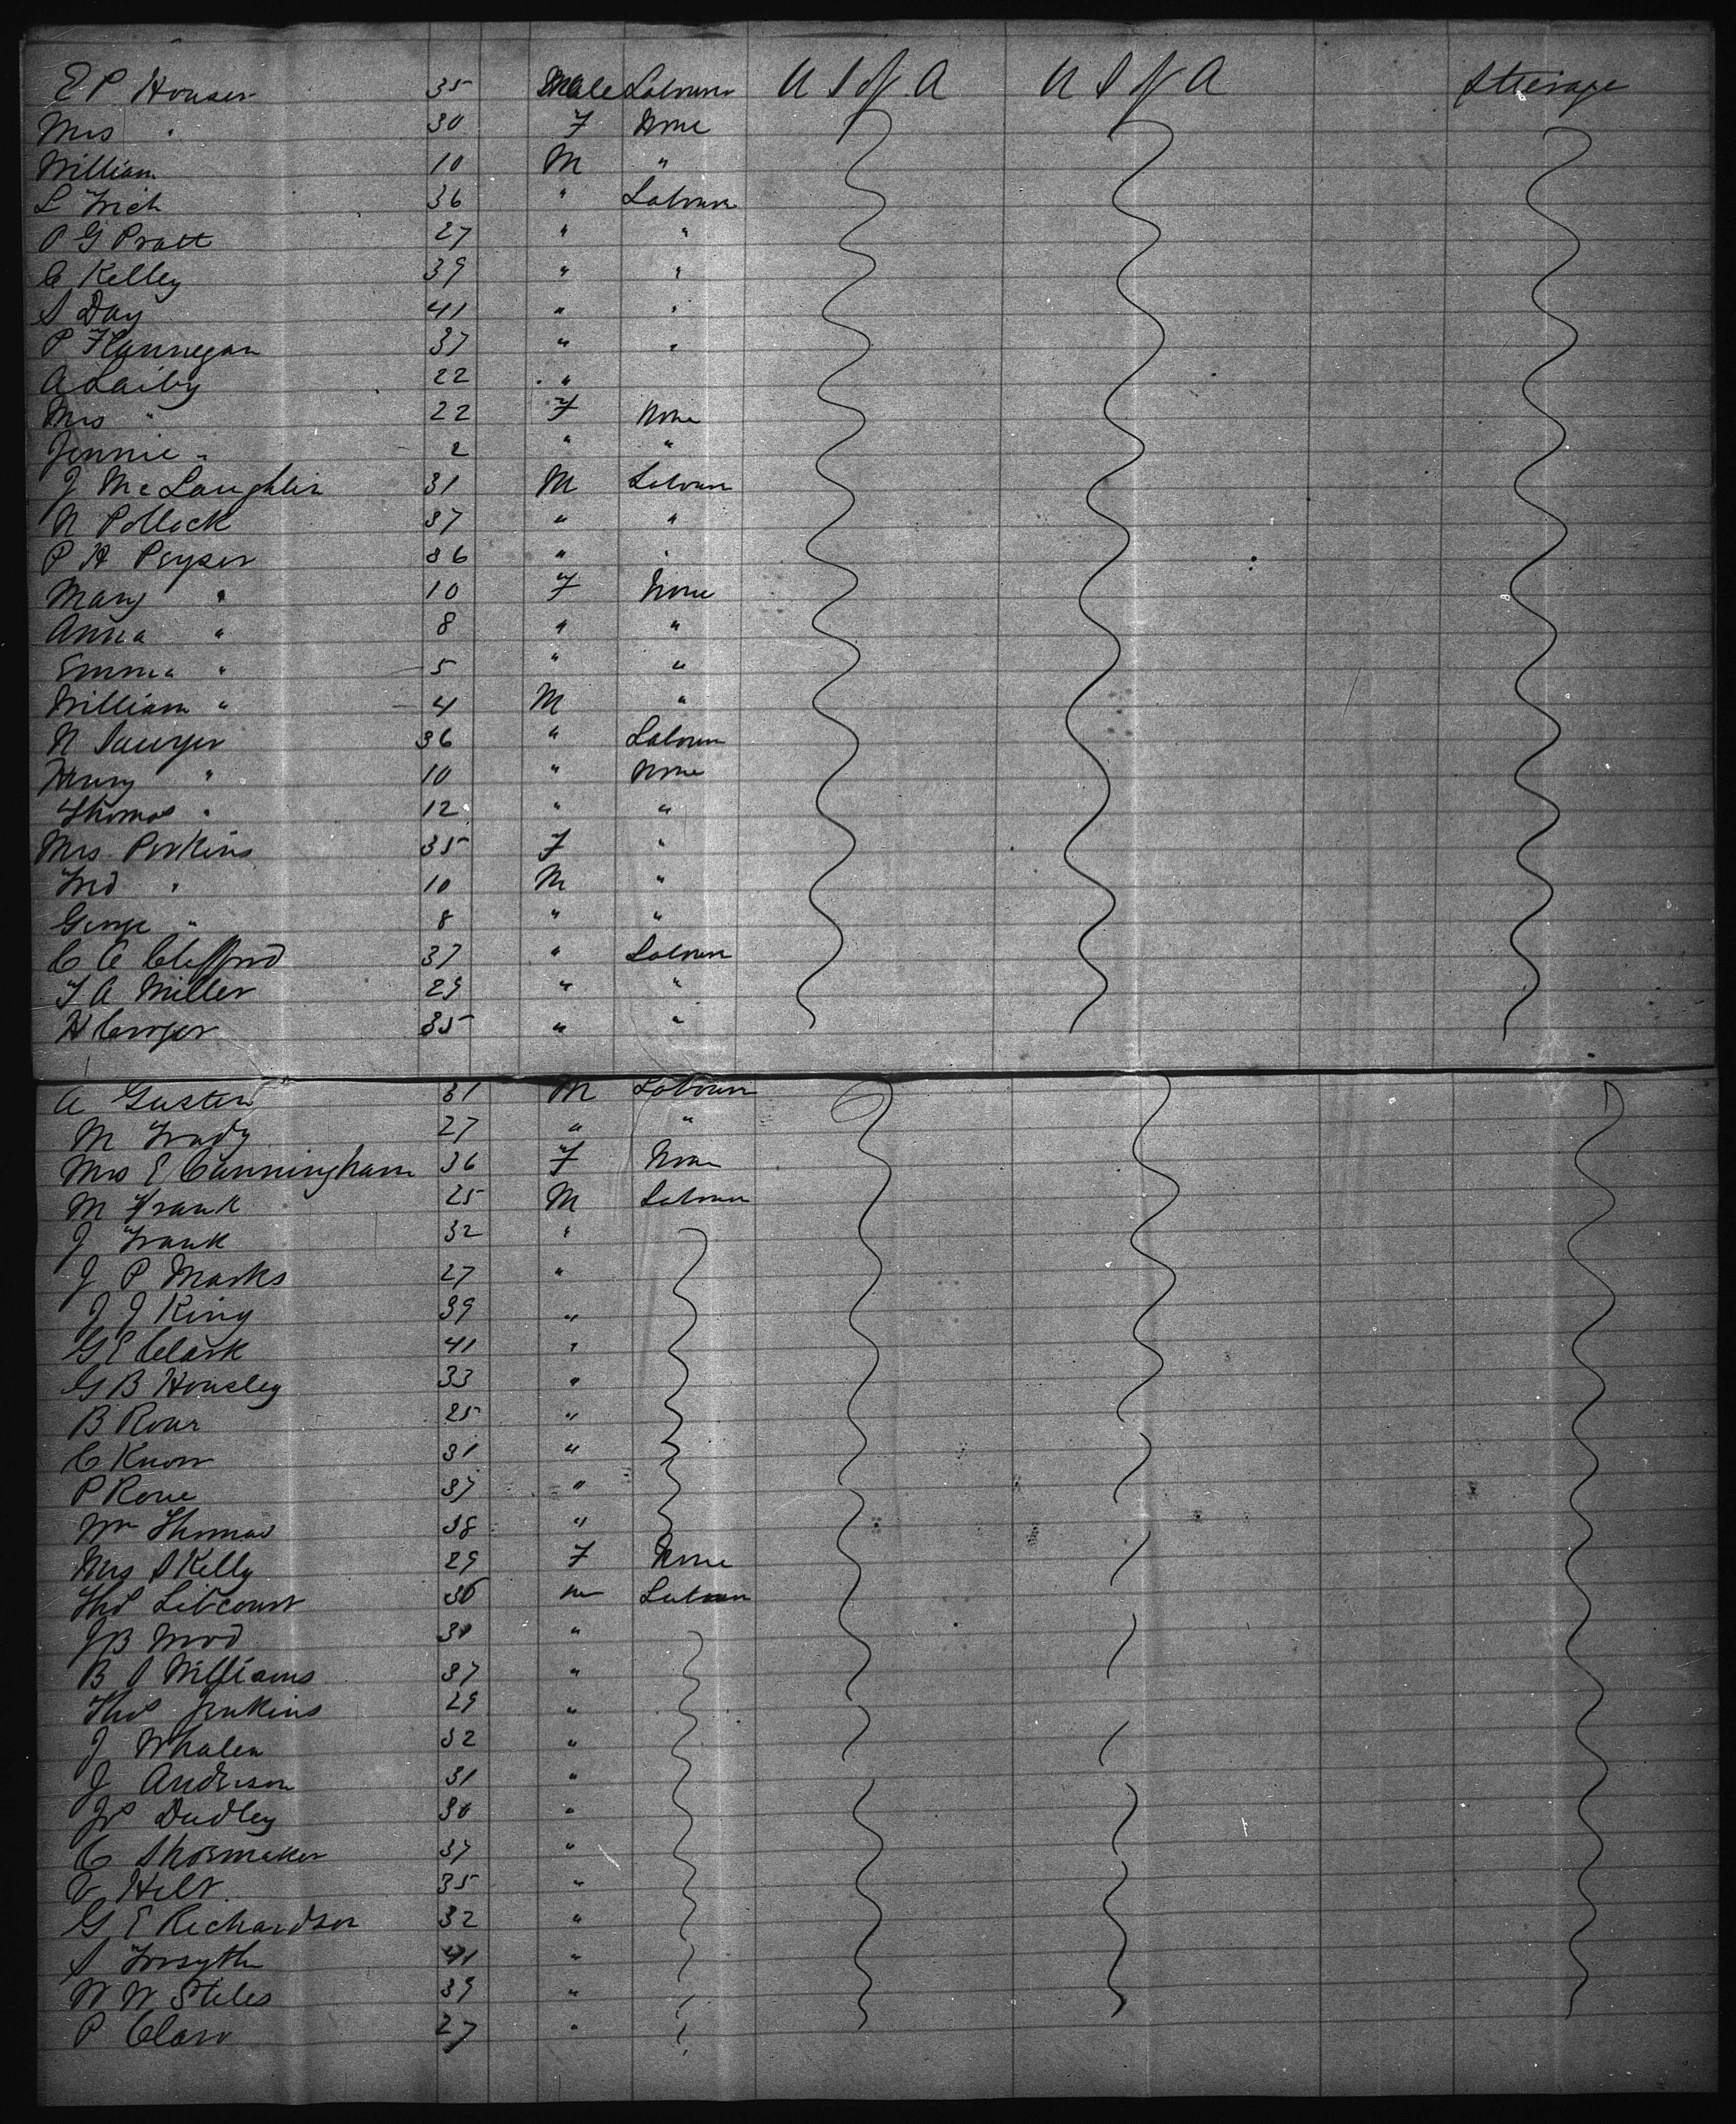 E P Houser 35 Male Labourer U S of A U S of A Steerage
Mrs " 30 F None
William 10 M "
L 36 " Labourer
P G Pratt 27 " "
C Kelley 39 " "
S Day 41 " "
P Flannegan 37 " "
A Laiby 22 "
Mrs " 22 F None
Jennie " 2 " "
J McLaughlin 31 M Labourer
N Pollock 37 " "
P H Peyser 36 " "
Mary " 10 F None
Anna " 8 " "
Emma " 5 " "
William " 4 M "
N Sawyer 36 " Labourer
Henry " 10 " None
Thomas " 12 " "
Mrs Perkins 35 F "
Fred " 10 M "
George " 8 " "
C C Clifford 37 " Labourer
T A Miller 29 " "
H 35 " "
A Guster 31 M Labourer
M Grady 27 " "
Mrs E Cunningham 36 F None
M Frank 25 M Labourer
J Frank 32 "
J P Marks 27 "
J J King 39 "
G E Clark 41 "
G B Housley 33 "
B 25 "
C Knorr 31 "
P Rowe 37 "
Wm Thomas 38 "
Mrs S Kelly 29 F None
Thos 36 M Labourer
J B Wood 30 "
B S Williams 37 "
Thos Jenkins 29 "
J Whalen 32 "
J Anderson 31 "
Js Dudley 30 "
C Shoemaker 37 "
V Hilt 35 "
G E Richardson 32 "
S Forsyth 41 "
W W Stiles 39 "
P 27 "